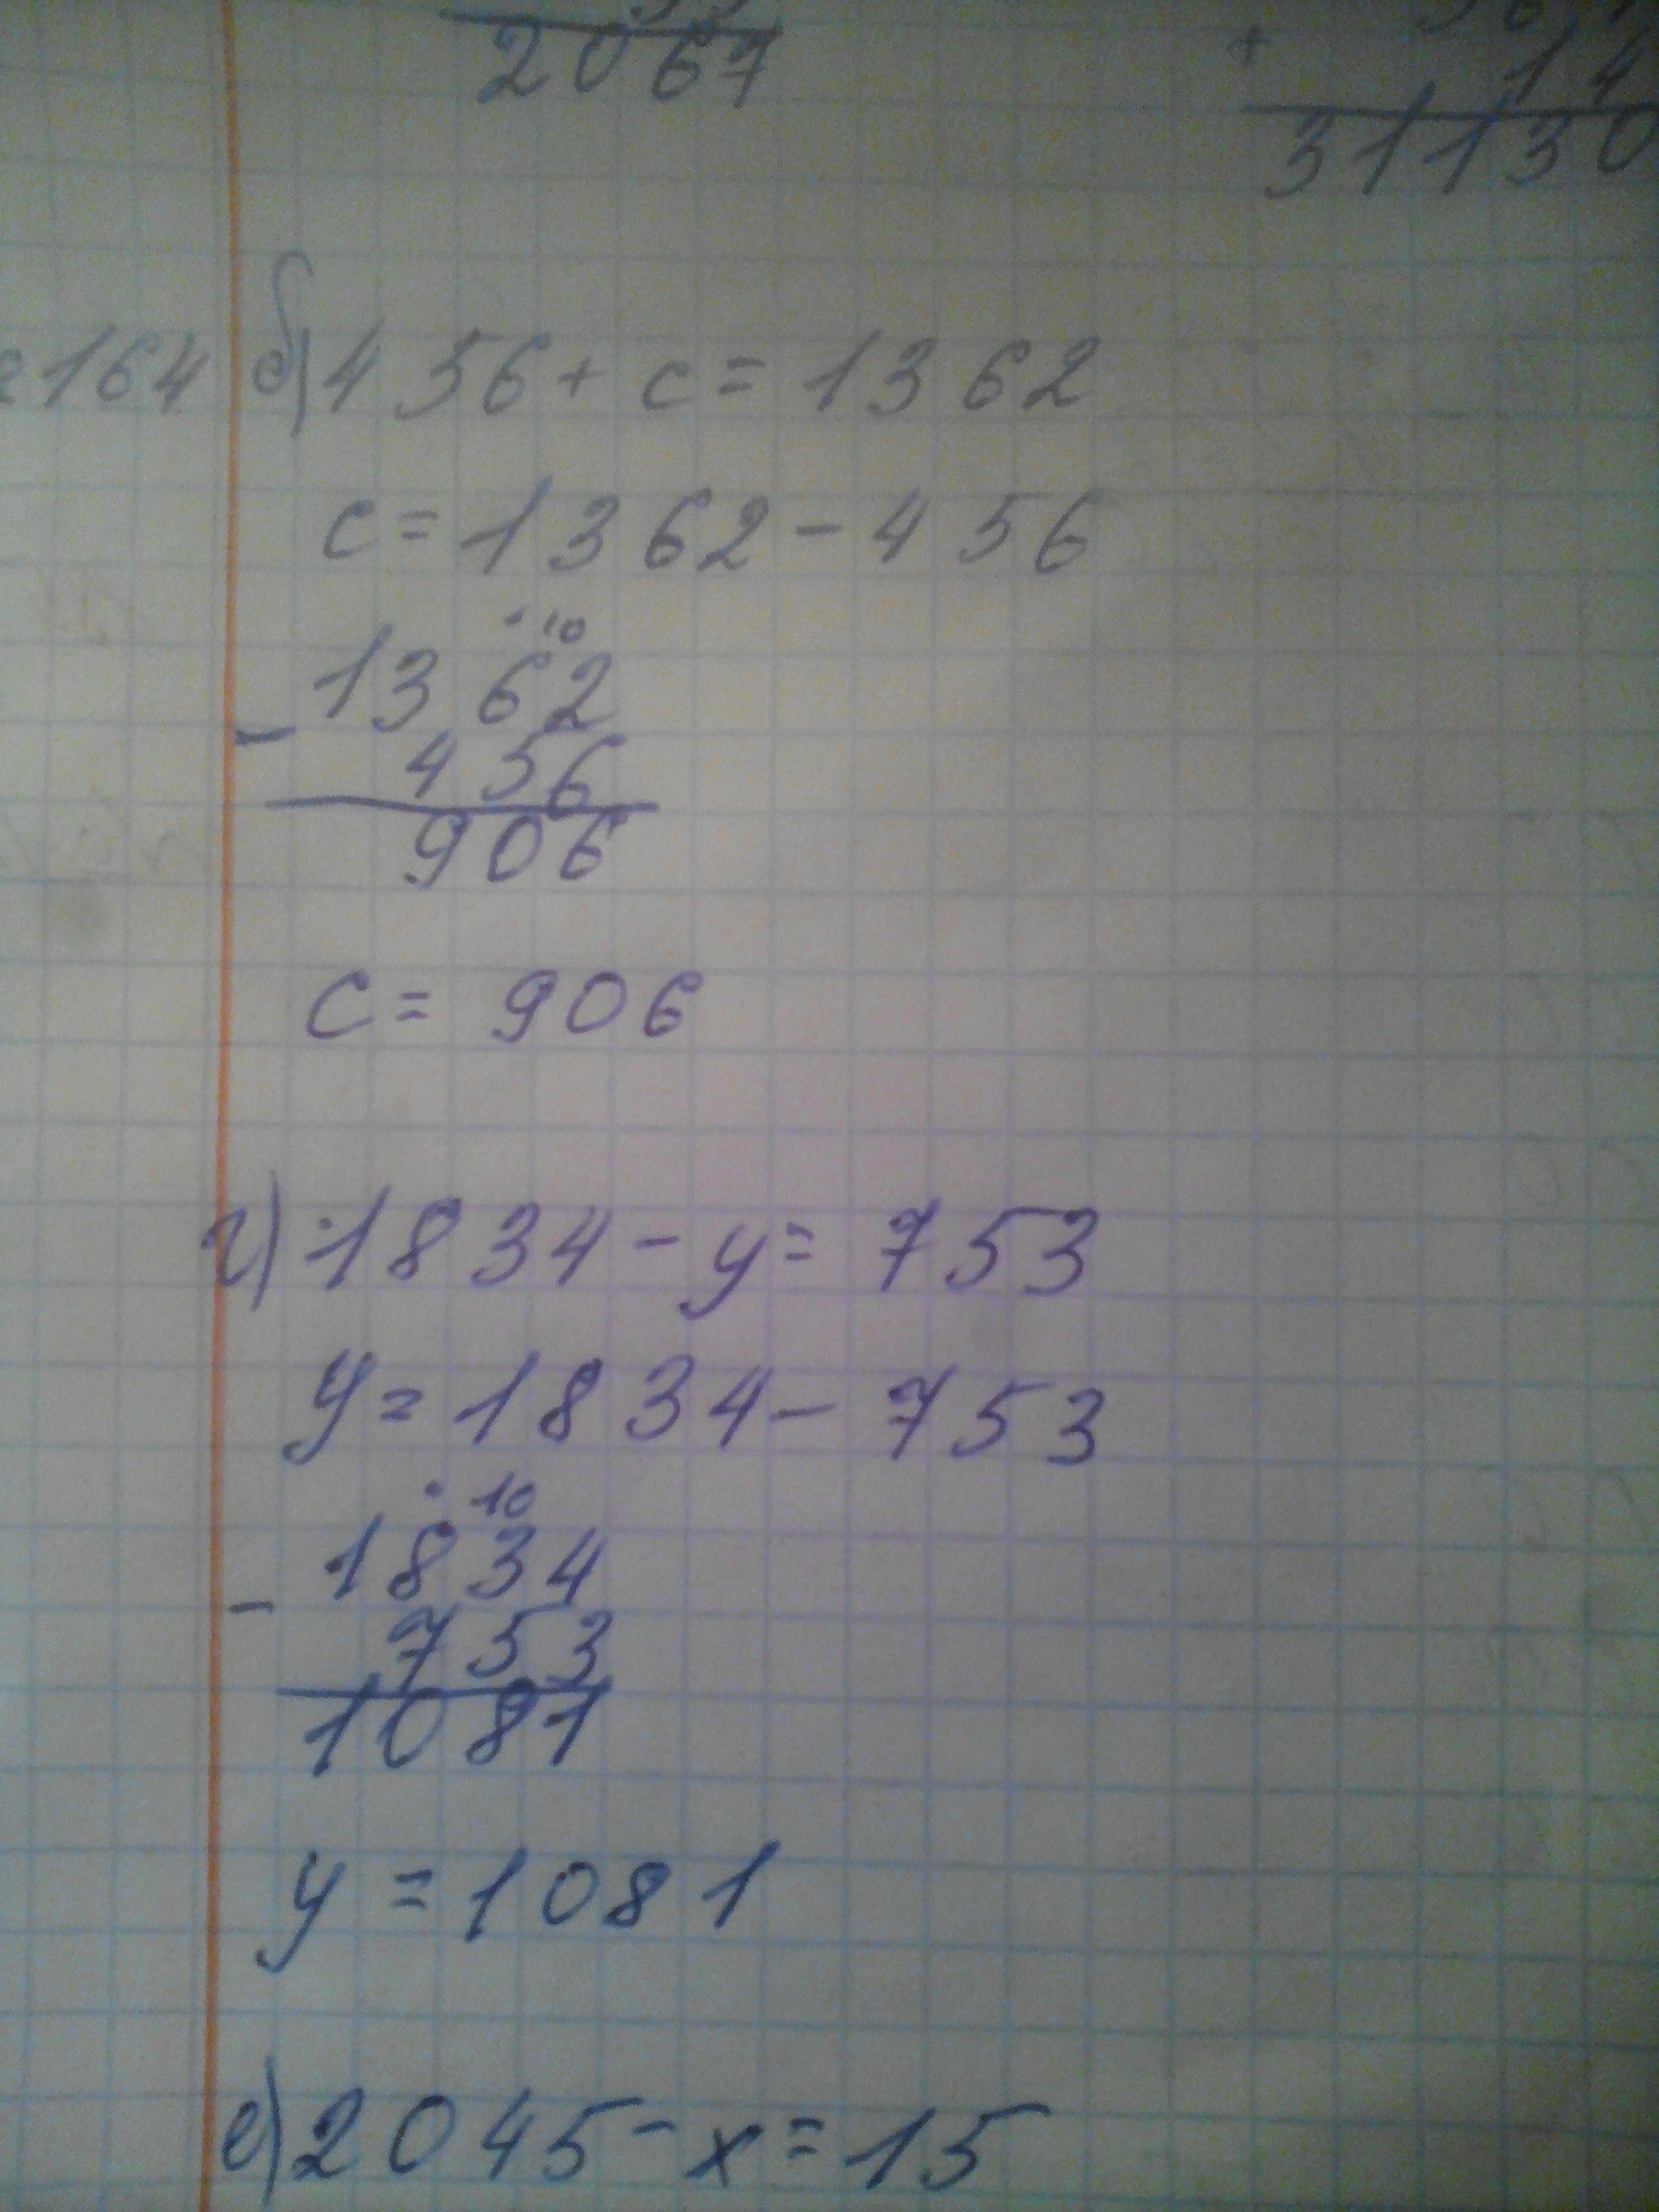 2067
+
14
31130
164 б) 456 + с = 1362
с = 1362 - 456
· 10
1362
-
456
906
с = 906
г) 1834 - y = 753
y = 1834 - 753
· 10
1834
-
753
1081
y = 1081
е) 2045 - x = 15